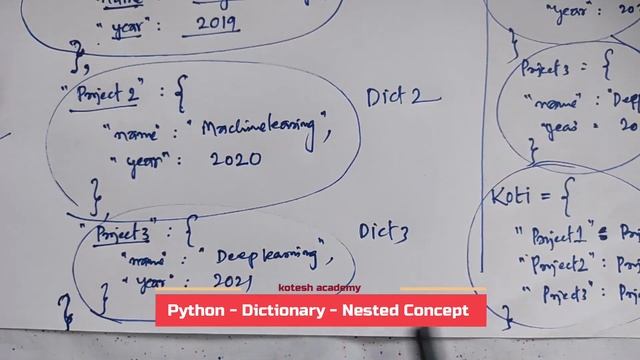 "name"
"year" : 2019
},
"Project 2" : {
"name" : "Machine learning",
"year" : 2020
},
Dict 2
"Project3" : {
"name" : "Deep learning",
"year" : 2021
}
}
Dict 3
"year" : 20
}
Project3 = {
"name" : "Deep
"year" = 20
}
Koti = {
"Project1" : Proj
"Project2" : Proj
"Project3" : Proj
}
kotesh academy
Python - Dictionary - Nested Concept